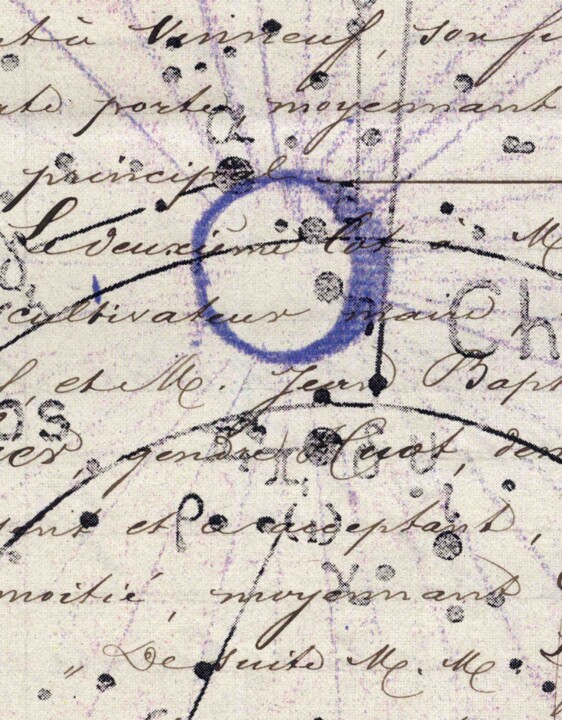 à Vinneuf, son
porte moyennant
α
principal
Le deuxième lot à M
cultivateur maire,
Ch
et M. Jean Bapt
os
gendre Huot,
ρ
et acceptant,
moitié, moyennant
γ
„ De suite M. M.